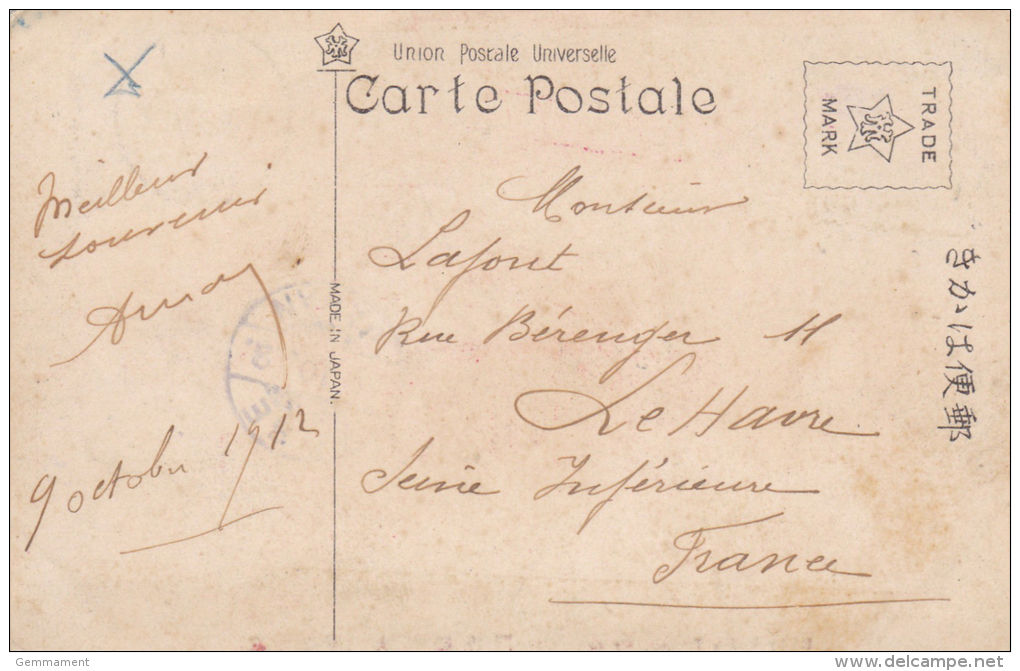 Union Postale Universelle
Carte Postale
TRADE
MARK
Meilleur
souvenir
9 October 1912
MADE IN JAPAN.
Monsieur
Lafont
Rue Bérenger 11
Le Havre
Seine Inférieure
France
きかは便郵
Gemmament
delcampe.net